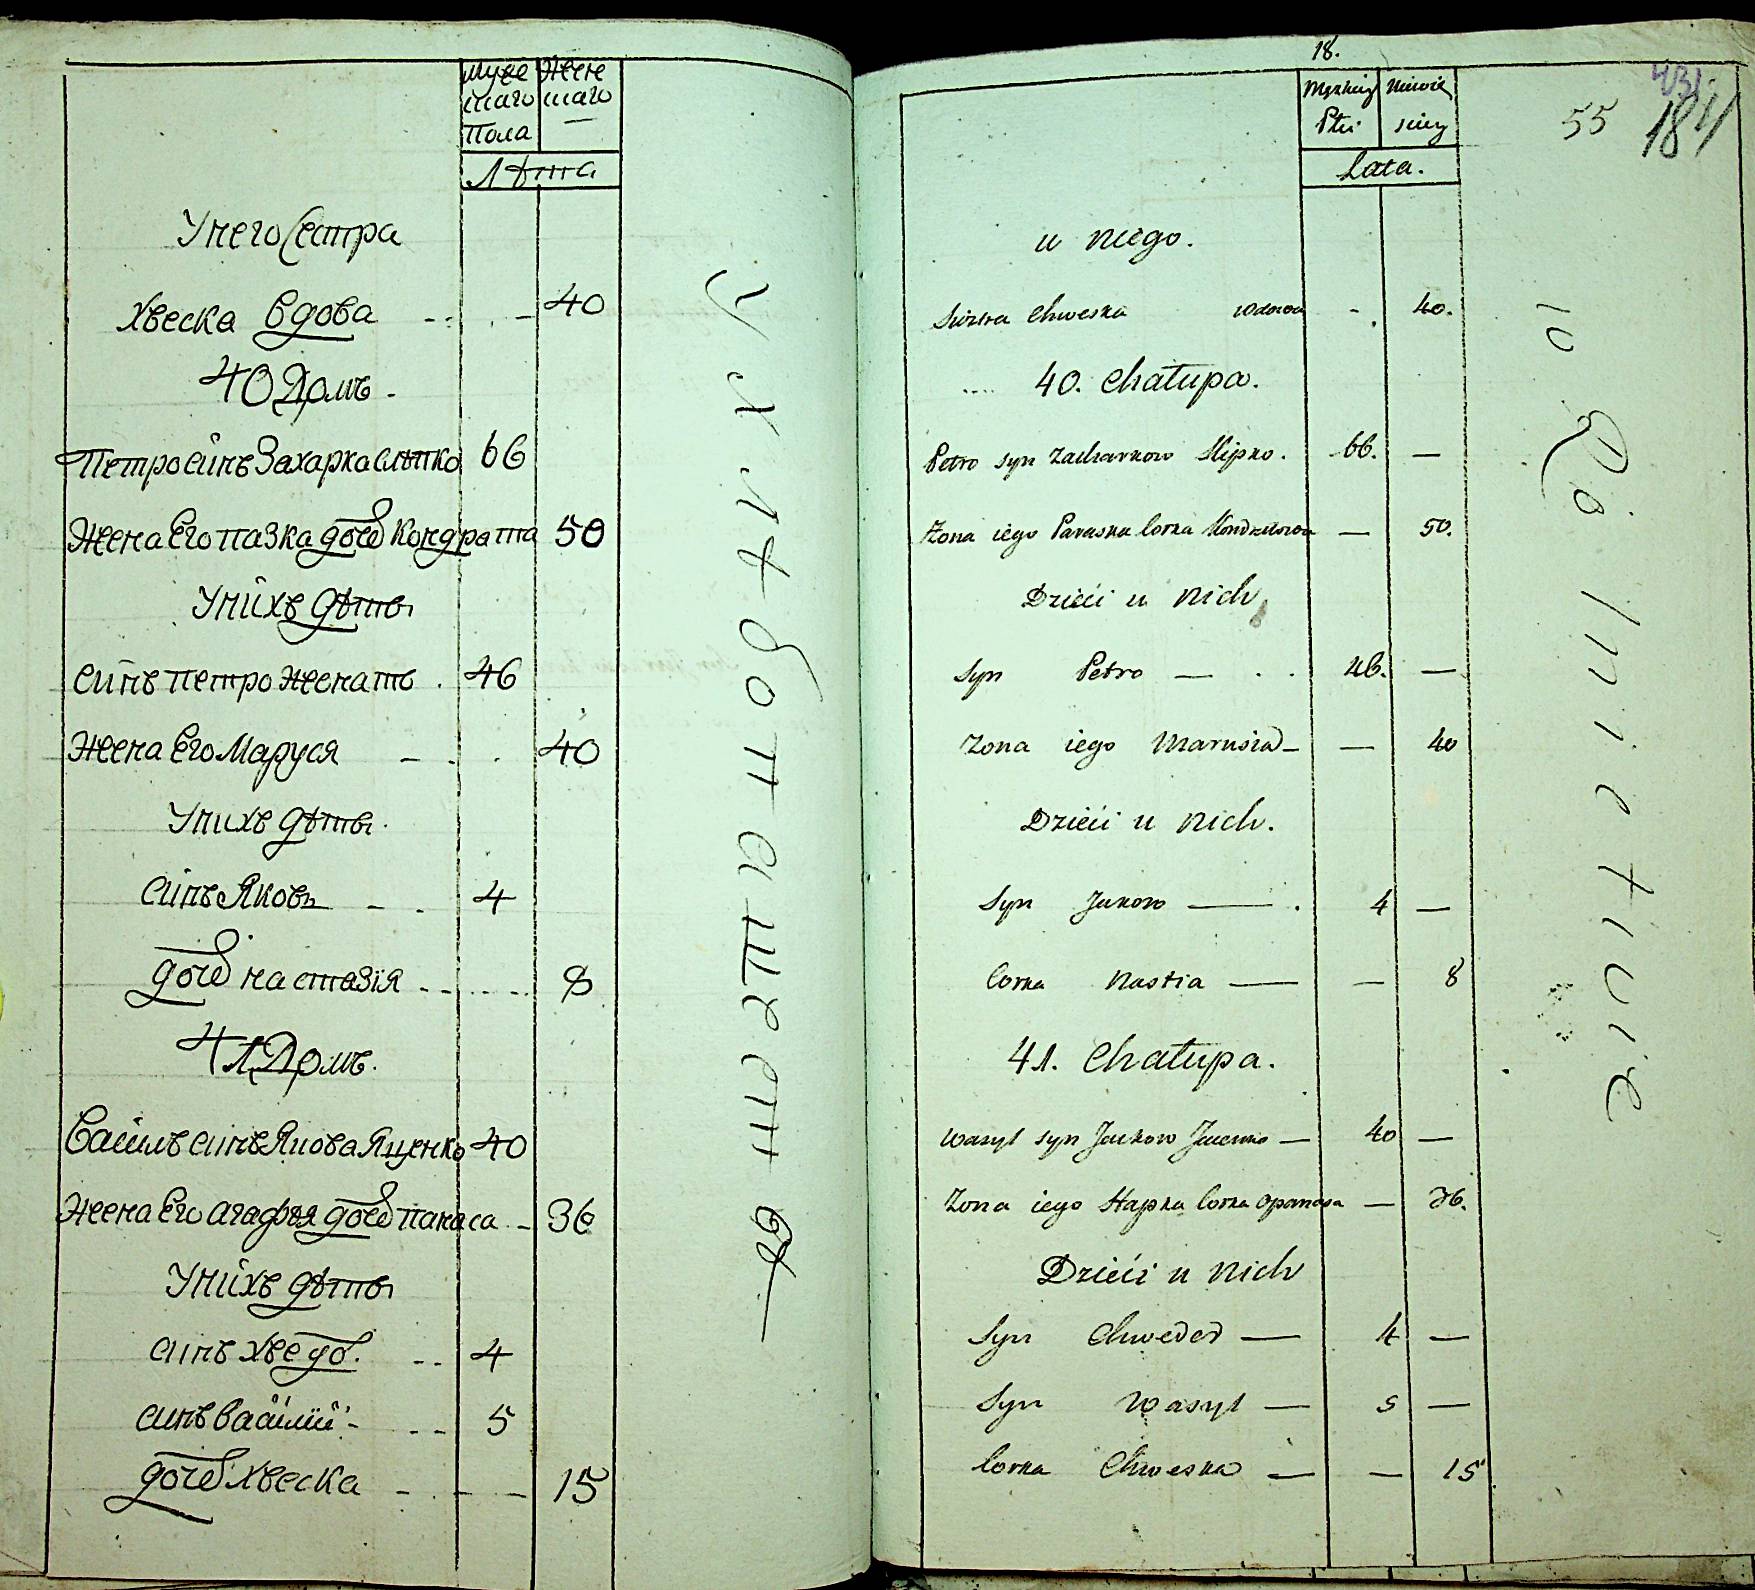 муже жене
скаго скаго
пола
Лѣта
У него Сестра
Хвеска вдова 40
40 Домъ
Петро синъ Захарка Слѣпко 66
Жена Его Пазка дочь Кондрата 50
У нихъ дѣти
синъ Петро женатъ 46
Жена Его Маруся 40
У нихъ дѣти
Синъ Яковъ 4
дочь Настазія 8
41 Домъ
Василь синъ Якова Яценко 40
Жена Его Агафъя дочь Панаса 36
У нихъ дѣти
синъ Хведо. 4
синъ Василій 5
дочь Хвеска 15
18.
Męzkiey Niewie
Płci sciey
Lata.
55 184
431.
u Niego.
Siostra Chweska wdowa 40.
40. Chałupa.
Petro syn Zacharkow Slipko. 66. —
Zona iego Paraska Corka Kondratowa — 50.
Dzieci u Nich
Syn Petro — 46. —
Zona iego Marusia — — 40
Dzieci u Nich.
Syn Jakow — 4 —
Corka Nastia — — 8
41. Chałupa.
Wasyl syn Jakow Jacenko — 40 —
Zona iego Hapka Corka Opanasa — 36.
Dzieci u Nich
Syn Chweder — 4 —
Syn Wasyl — 5 —
Corka Chweska — — 15